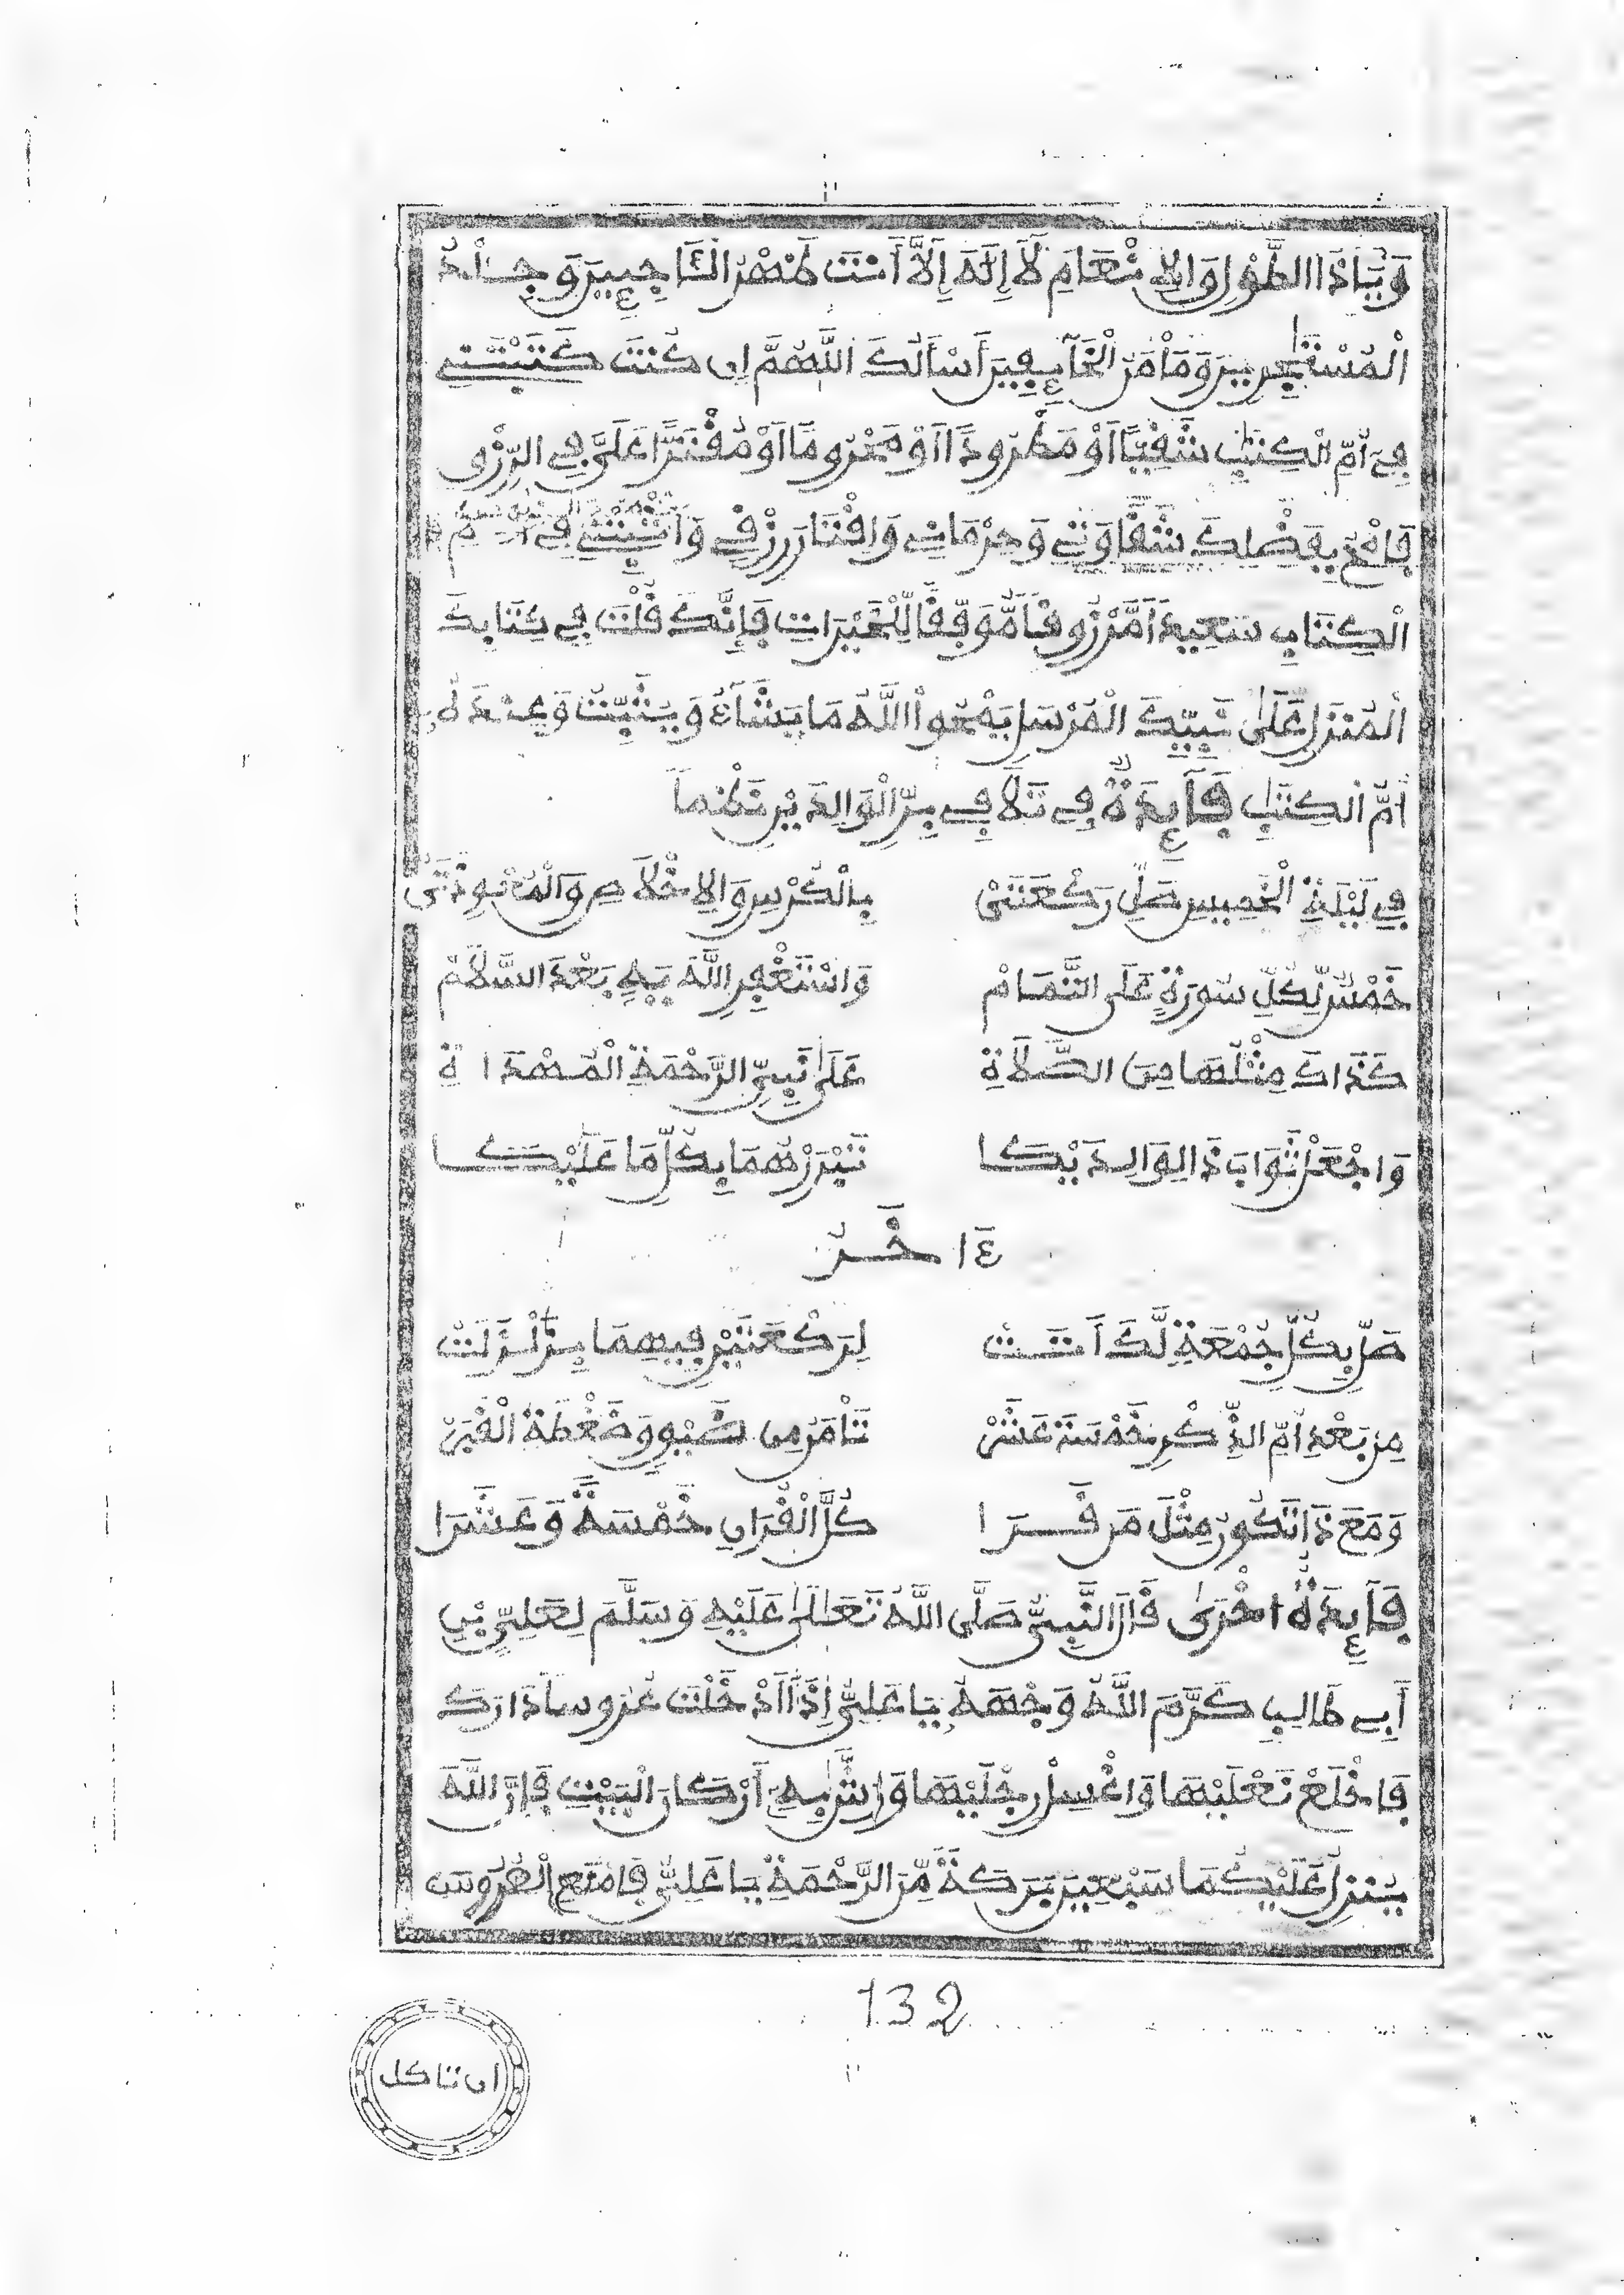 وَيَاذَا الطَّوْلِ وَالِانْعَامِ لَآ إِلَهَ إِلَّآ أَنتَ ظَهْرُ اللَّاجِئِينَ وَجَارُ
الْمُسْتَجِيرِينَ وَمَأْمَنُ الْخَآئِفِينَ أَسْأَلُكَ اللَّهُمَّ إِن كُنتَ كَتَبْتَنِي
فِي أُمِّ الْكِتَٰبِ شَقِيًّا اَوْ مَطْرُودًا اَوْ مَحْرُومًا اَوْ مُقْتَرًّا عَلَيَّ فِي الرِّزْقِ
فَامْحُ بِفَضْلِكَ شَقَاوَتِي وَحِرْمَانِي وَاقْتَارَ رِزْقِي وَأَثْبِتْنِي فِي أُمِّ
الْكِتَابِ سَعِيدًا مَّرْزُوقًا مُّوَفَّقًا لِّلْخَيْرَاتِ فَإِنَّكَ قُلْتَ فِي كِتَابِكَ
الْمُنزَلِ عَلَىٰ نَبِيِّكَ الْمُرْسَلِ يَمْحُواْ اللَّهُ مَا يَشَآءُ وَيُثْبِتُ وَعِندَهُ
أُمُّ الْكِتَٰبِ فَآئِدَةٌ فِي تَلَافِي بِرِّ الْوَالِدَيْنِ نَظْمًا
فِي لَيْلَةِ الْخَمِيسِ صَلِّ رَكْعَتَيْ بِالْكُرْسِ وَالِاخْلَاصِ وَالْمُعَوِّذَتَيْ
خَمْسًا لِكُلِّ سُورَةٍ عَلَى التَّمَامْ وَاسْتَغْفِرِ اللَّهَ بِهِ بَعْدَ السَّلَامْ
كَذَاكَ مِثْلُهَا مِنَ الصَّلَاةِ عَلَىٰ نَبِيِّ الرَّحْمَةِ الْمُهْدَاةِ
وَاجْعَلْ ثَوَابَ ذَا لِوَالِدَيْكَا تَبْرَرْهُمَا بِكُلِّ مَا عَلَيْكَا
ءَاخَرُ
صَلِّ بِكُلِّ جُمْعَةٍ لَّكَ أَتَتْ لِرَكْعَتَيْنِ فِيهِمَا بِزُلْزِلَتْ
مِن بَعْدِ أُمِّ الذِّكْرِ خَمْسَةَ عَشَرْ تَأْمَنُ مِن وَضَغْطَةِ الْقَبَرْ
وَمَعَ ذَا تَكُونُ مِثْلَ مَن قَرَا كُلَّ الْقُرَانِ خَمْسَةً وَعَشَرَا
فَآئِدَةٌ اخْرَىٰ قَالَ النَّبِيُّ صَلَّى اللَّهُ تَعَالَىٰ عَلَيْهِ وَسَلَّمَ لِعَلِيِّ بْنِ
أَبِي طَالِبٍ كَرَّمَ اللَّهُ وَجْهَهُ يَا عَلِيُّ إِذَآ أَدْخَلْتَ عَرُوسًا دَارَكَ
فَاخْلَعْ نَعْلَيْهَا وَاغْسِلْ رِجْلَيْهَا وَارْشُشْ بِهِ أَرْكَانَ الْبَيْتِ فَإِنَّ اللَّهَ
يُنزِلُ عَلَيْكُمَا سَبْعِينَ بَرَكَةً مِّنَ الرَّحْمَةِ يَا عَلِيُّ فَامْنَعِ الْعَرُوسَ
132
ان تاكل